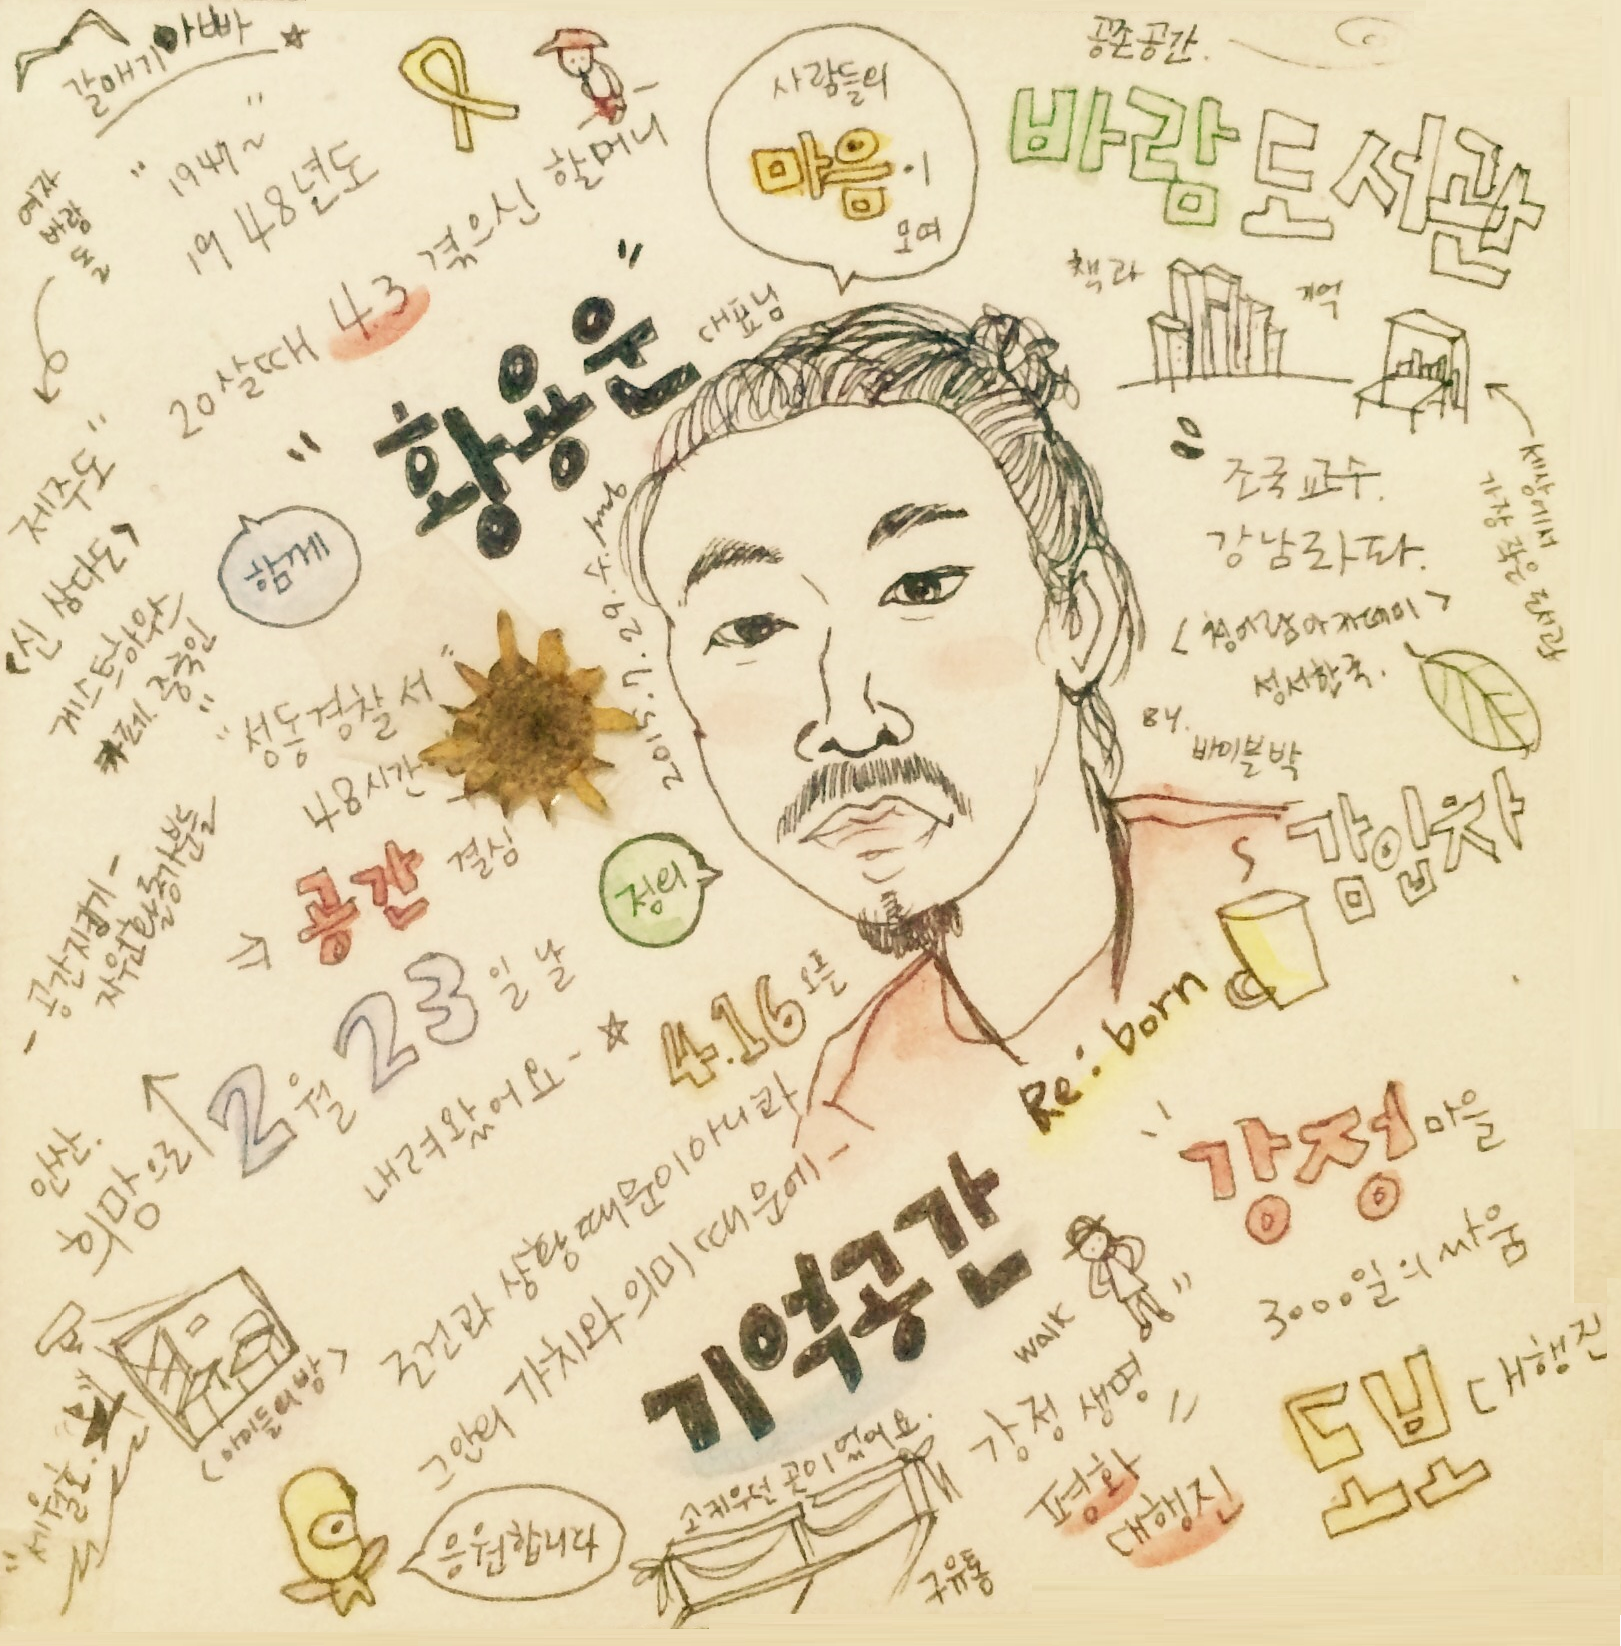 갈매기아빠
"1947~
1948년도"
20살때 4.3 겪으신 할머니
여자
바람
돌
제주도"
<신 삼다도>
게스트하우스
카페. 중국인
"
사람들의
마음이
모여
공존공간.
바람도서관
책과
기억
세상에서
가장 작은 도서관
"황용운" 대표님
함께
2015.7.29.수.ymb
조국교수.
강남좌파.
<청어람아카데미>
정서한국.
By.
바이블박
"성동경찰서"
48시간
⇒ 공간 결심
정의
감잎차
-공간지키기-
자원활동가분들
2월 23일 날
내려왔어요~
4.16 오픈
Re:born
안산.
희망으로
물건과 상황때문이아니라
그안의 가치와 의미때문에-
기억공간
고키우션 곳이 없어요.
"강정마을
3000일의 싸움
walk
강정생명
평화
대행진
"
도보 대행진
<아이들의방>
"세월호.
응원합니다
구유통